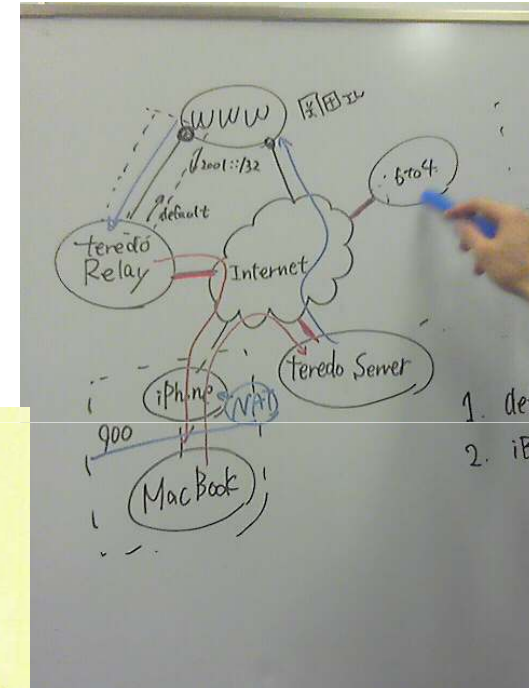 WWW
2001::/32
default
6to4
teredo
Relay
Internet
teredo Server
iPhone
NAT
900
MacBook
1. de
2. iB